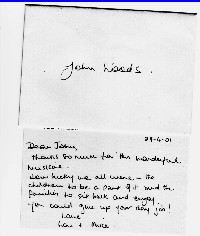 John Woods.
29-4-01
Dear John,
Thanks so much for this wonderful
How lucky we all were - the
children to be a part of it and the
families to sit back and enjoy.
You could give up your day job!
Love